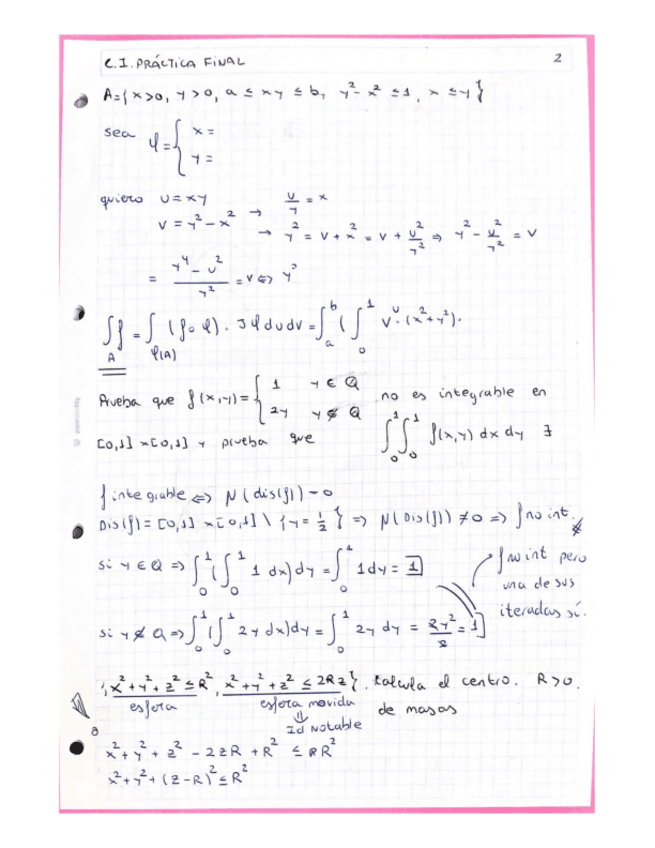 C.I. PRÁCTICA FINAL 2
A={x>0, y>0, a ≤ xy ≤ b, y²-x² ≤1, x ≤y}
sea φ={ x=
y=
quiero u=xy → u/y = x
v=y²-x² → y² = v+x² = v + u²/y² ⇒ y² - u²/y² = v
= (y⁴-u²)/y² = v ⇔ y³
∬_A f = ∫_φ(A) (f∘φ). Jφ dudv = ∫_a^b (∫_0^1 v^u·(x²+y²).
Prueba que f(x,y)={ 1 y ∈ Q no es integrable en
2y y ∉ Q
[0,1] x[0,1] y prueba que ∫_0^1 ∫_0^1 f(x,y) dx dy ∃
f integrable ⇔ N(dis(f)) = 0
Dis(f)= [0,1] x[0,1] \ {y=1/2} ⇒ N(Dis(f)) ≠0 ⇒ f no int.
si y ∈ Q ⇒ ∫_0^1 (∫_0^1 1 dx)dy = ∫_0^1 1dy = 1
f no int pero
una de sus
iteradas sí.
si y ∉ Q ⇒ ∫_0^1 (∫_0^1 2y dx)dy = ∫_0^1 2y dy = 2y²/2 = 1]
x²+y²+z² ≤R², x²+y²+z² ≤ 2Rz}. Calcula el centro. R>0.
esfera esfera movida de masas
⇓
Id Notable
x²+y²+z² - 2zR +R² ≤ RR²
x²+y²+(z-R)² ≤ R²